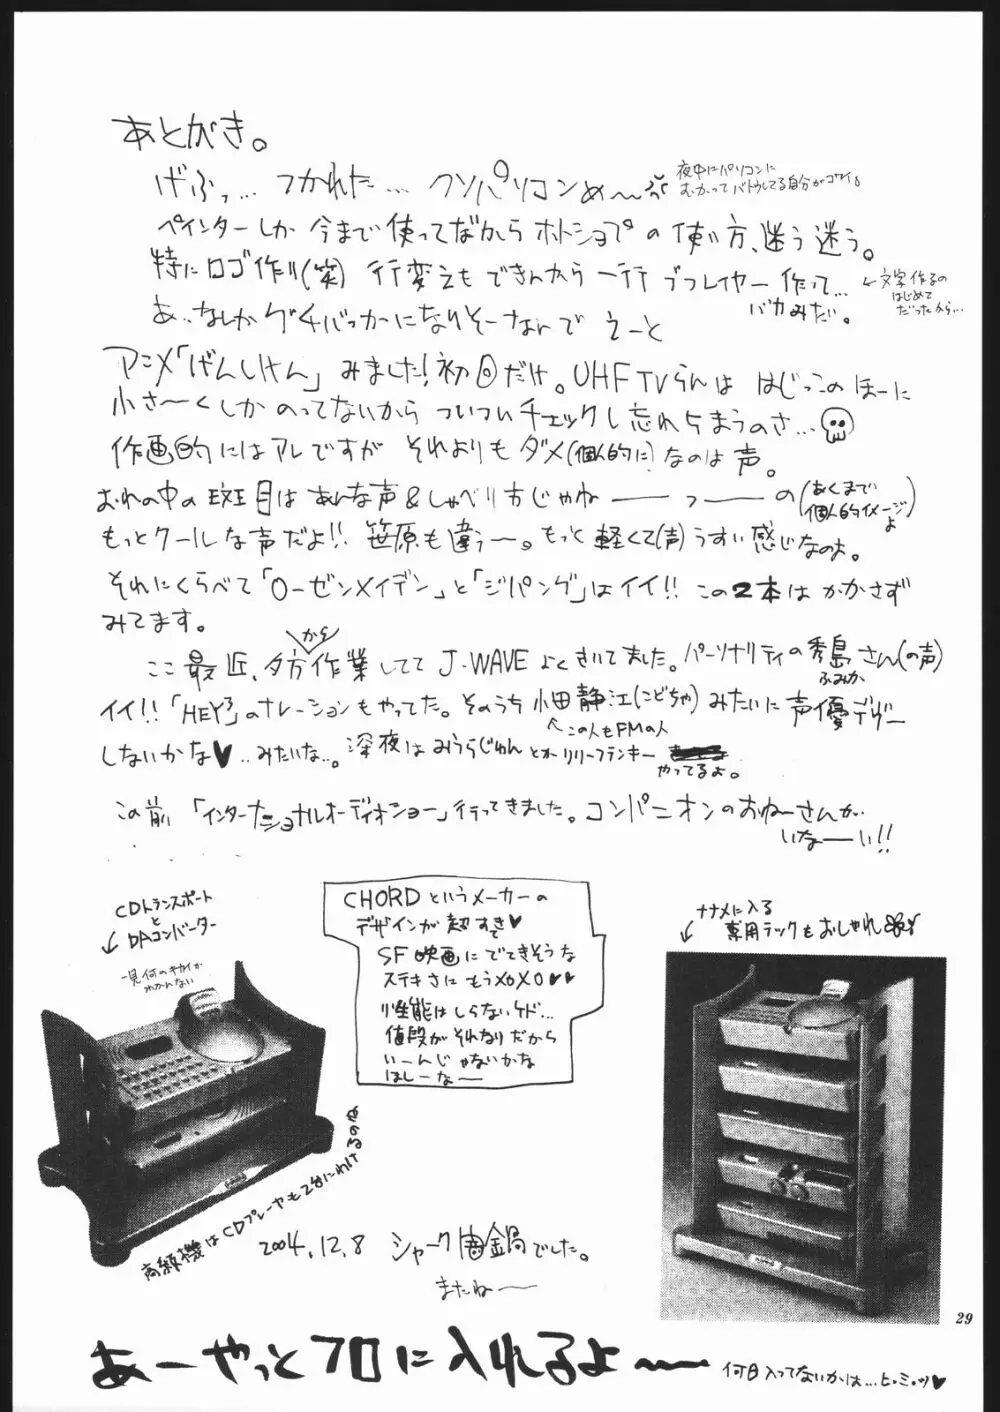 あとがき。
げふっ…つかれた…クソパソコンめ〜
夜中にパソコンに
むかってバトウしてる自分がコワイ。
ペインターしか今まで使ってなかったからホトショプの使い方、迷う迷う。
特にロゴ作り(笑) 行変えもできんから一行づつレイヤー作って…
バカみたい。
←文字作るの
はじめて
だったから…
あ、なんかグチばっかになりそーなんで えーと
アニメ「げんしけん」みました!初回だけ。UHF TVらんは はじっこのほーに
小さ〜くしかのってないから ついついチェックし忘れちまうのさ…
作画的にはアレですが それよりもダメ(個人的に)なのは声。
おれの中の斑目はあんな声&しゃべり方じゃねーーっーーの(あくまで
個人的イメージ
よ)
もっとクールな声だよ!!笹原も違う〜。もっと軽くて(声)うすい感じなのよ。
それにくらべて「ローゼンメイデン」と「ジパング」はイイ!!この2本はかかさず
みてます。
ここ最近、夕方から作業してて J-WAVEよくきいてました。パーソナリティの秀島さん(の声)
ふみか
イイ!!「HEY³」のナレーションもやってた。そのうち小田静江(こどちゃ)みたいに声優デビュー
↖この人もFMの人
しないかな♥…みたいな…。深夜はみうらじゅんとかリリーフランキー
やってるよ。
この前「インターナショナルオーディオショー」行ってきました。コンパニオンのおねーさんが
いなーーい!!
CDトランスポート
と
DAコンバーター
一見何のキカイか
わかんない
CHORDというメーカーの
デザインが超すてき♥
SF映画にでてきそうな
ステキさにもうメロメロ♥♥
性能はしらないケド…
値段がそれなりだから
いーんじゃないかな
ほしーなー
ナナメに入る
専用ラックもおしゃれ
高級機はCDプレーヤも2台にわけるのだ
2004.12.8 シャーク闇鍋でした。
またねー
あーやっとフロに入れるよ〜
何日入ってないかは…ヒ・ミ・ツ♥
29